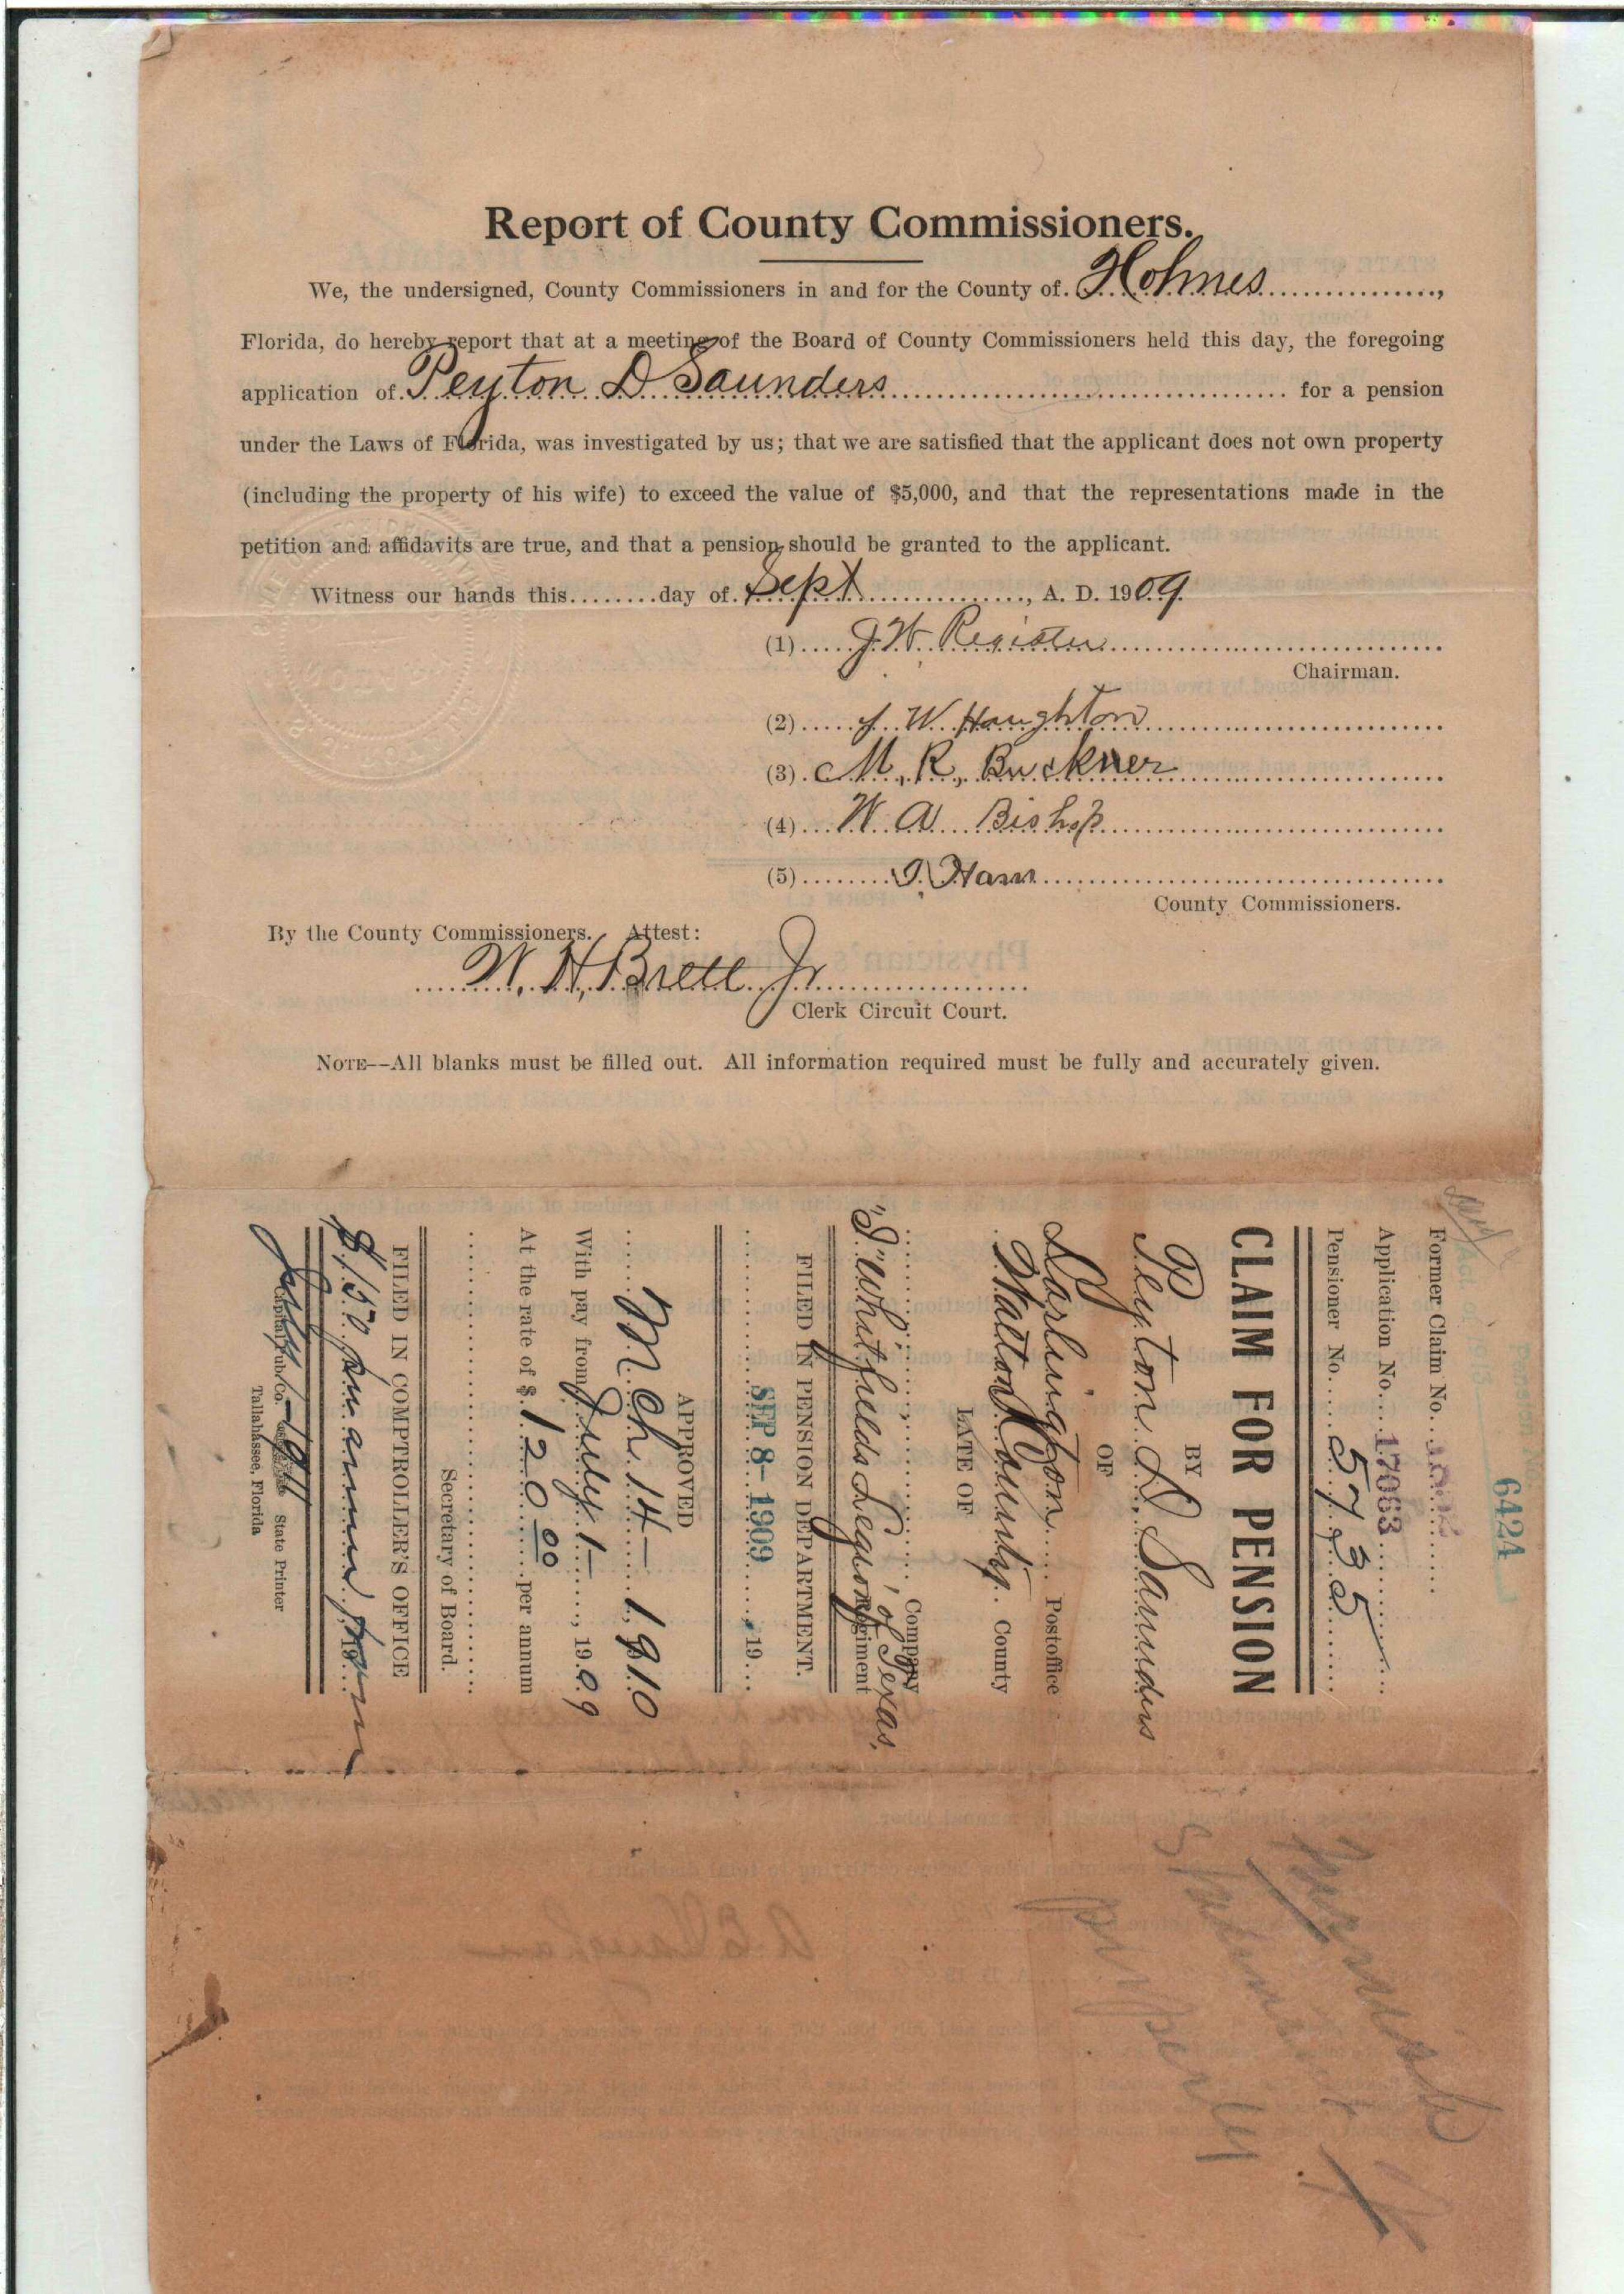 Report of County Commissioners.
We, the undersigned, County Commissioners in and for the County of Holmes,
Florida, do hereby report that at a meeting of the Board of County Commissioners held this day, the foregoing
application of Peyton D Saunders for a pension
under the Laws of Florida, was investigated by us; that we are satisfied that the applicant does not own property
(including the property of his wife) to exceed the value of $5,000, and that the representations made in the
petition and affidavits are true, and that a pension should be granted to the applicant.
Witness our hands this........day of Sept, A. D. 1909.
(1) J. W. Register
Chairman.
(2) J. W. Haughton
(3) M, R, Buckner
(4) W. A. Bishop
(5) J. Ham
County Commissioners.
By the County Commissioners. Attest:
W. H, Brett Jr
Clerk Circuit Court.
NOTE--All blanks must be filled out. All information required must be fully and accurately given.
6424
Former Claim No.
Application No. 17063
Pensioner No. 5735
CLAIM FOR PENSION
BY
Peyton D. Saunders
OF
Darlington Postoffice
Walton County. County
LATE OF
Company
"I" Whitfields Legion, of Texas. Regiment
FILED IN PENSION DEPARTMENT.
SEP 8- 1909, 19...
APPROVED
Mch 14- 1910
With pay from July 1-, 1909
At the rate of $ 120 00 per annum
Secretary of Board.
FILED IN COMPTROLLER'S OFFICE
$150 per annum from
July 1- 1911
Capital Pub. Co. State Printer
Tallahassee, Florida